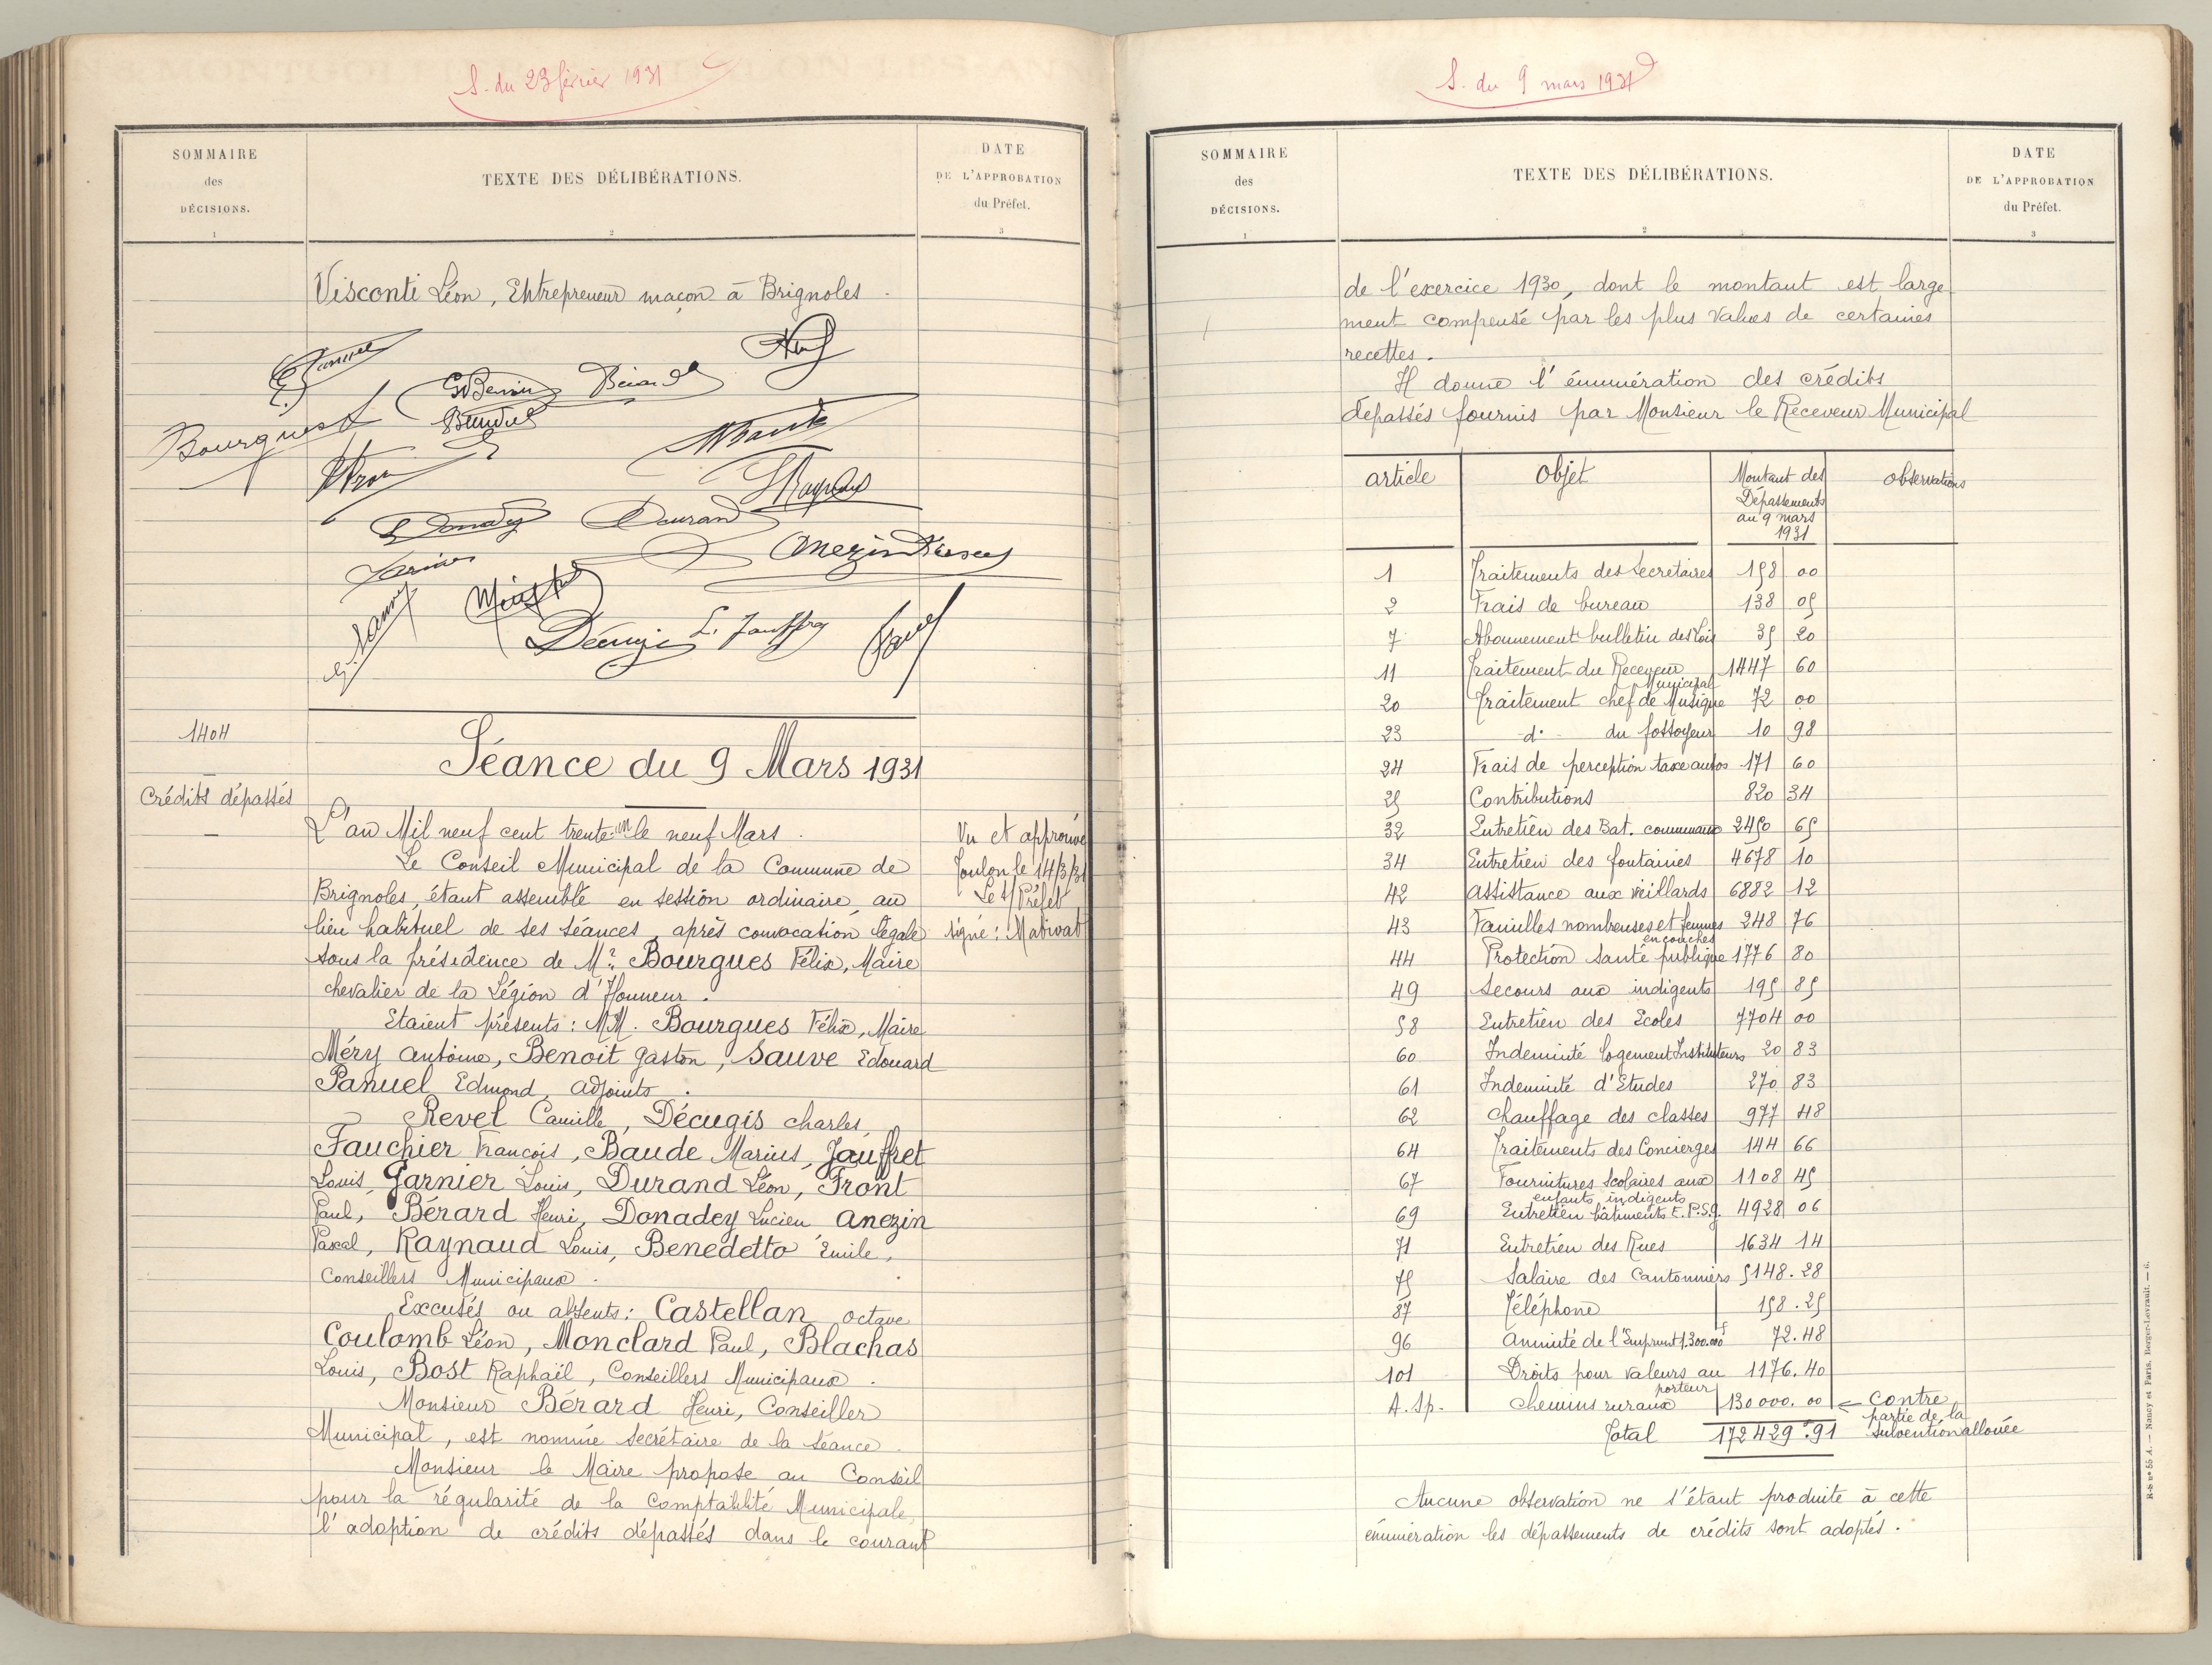 S. du 23 février 1931
SOMMAIRE
des
DÉCISIONS.
1
TEXTE DES DÉLIBÉRATIONS.
2
DATE
DE L'APPROBATION
du Préfet.
3
Visconti Léon, Entrepreneur maçon à Brignoles.
Bourgues
Bérard
Durand
Anezin
Décugis L. Jauffret
1404
Crédits dépassés
Séance du 9 Mars 1931
L'an Mil neuf cent trente-un le neuf Mars.
Le Conseil Municipal de la Commune de
Brignoles, étant assemblé en session ordinaire, au
lieu habituel de ses séances, après convocation légale
sous la présidence de Mr. Bourgues Félix, Maire
chevalier de la Légion d'Honneur.
Etaient présents : MM. Bourgues Félix, Maire
Méry Antoine, Benoit Gaston, Sauve Edouard
Panuel Edmond, adjoints.
Revel Camille, Décugis Charles,
Fauchier François, Baude Marius, Jauffret
Louis, Garnier Louis, Durand Léon, Front
Paul, Bérard Henri, Donadey Lucien Anezin
Pascal, Raynaud Louis, Benedetto Emile,
Conseillers Municipaux.
Excusés ou absents : Castellan Octave
Coulomb Léon, Monclard Paul, Blachas
Louis, Bost Raphaël, Conseillers Municipaux.
Monsieur Bérard Henri, Conseiller
Municipal, est nommé secrétaire de la séance.
Monsieur le Maire propose au Conseil
pour la régularité de la Comptabilité Municipale,
l'adoption de crédits dépassés dans le courant
Vu et approuvé
Toulon le 14/3/31
Le s/Préfet
signé : Mativat
S. du 9 mars 1931
SOMMAIRE
des
DÉCISIONS.
1
TEXTE DES DÉLIBÉRATIONS.
2
DATE
DE L'APPROBATION
du Préfet.
3
de l'exercice 1930, dont le montant est large
ment compensé par les plus values de certaines
recettes.
Il donne l'énumération des crédits
dépassés fournis par Monsieur le Receveur Municipal
article objet Montant des Dépassements au 9 mars 1931 observations
1 Traitements des Secrétaires 158 00
2 Frais de bureau 138 05
7 Abonnement bulletin des Lois 35 20
11 Traitement du Receveur Municipal 1447 60
20 Traitement chef de Musique 72 00
23 d° du fossoyeur 10 98
24 Frais de perception taxe autos 171 60
25 Contributions 820 34
32 Entretien des Bat. communaux 2450 65
34 Entretien des fontaines 4678 10
42 Assistance aux vieillards 6882 12
43 Familles nombreuses et femmes en couches 248 76
44 Protection Santé publique 1776 80
49 Secours aux indigents 195 85
58 Entretien des Ecoles 7704 00
60 Indemnité logement Instituteurs 20 83
61 Indemnité d'Etudes 270 83
62 Chauffage des classes 977 48
64 Traitements des Concierges 144 66
67 Fournitures Scolaires aux enfants indigents 1108 45
69 Entretien bâtiments E.P.S.G. 4928 06
71 Entretien des Rues 1634 14
75 Salaire des Cantonniers 5148.28
87 Téléphone 158.25
96 Annuité de l'Emprunt 1.300.000f 72.48
101 Droits pour valeurs au porteur 1176.40
A.Sp. Chemins ruraux 130000.00 ← Contre
partie de la
subvention allouée
Total 172429.91
Aucune observation ne s'étant produite à cette
énumération les dépassements de crédits sont adoptés.
R-S n° 55 A. — Nancy et Paris, Berger-Levrault. — 6.